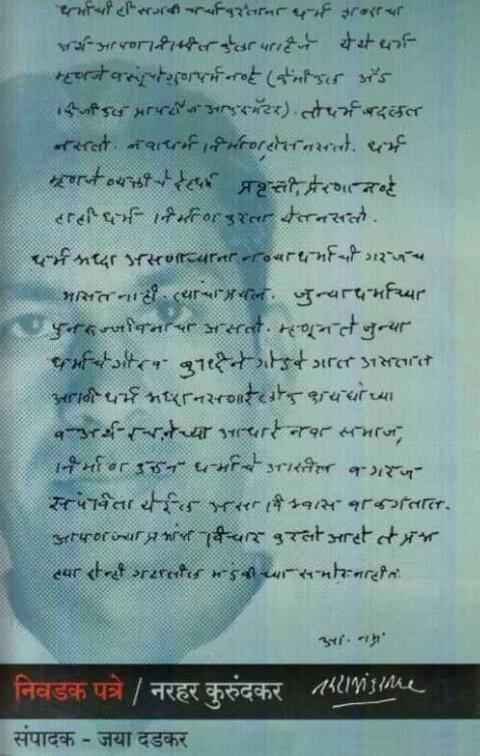 धर्माची ही सगळी चर्चा करताना धर्म शब्दाचा
अर्थ आपण निश्चित केला पाहीजे येथे धर्म
म्हणजे वस्तूचे गुणधर्म नव्हे (केमीकल अँड
फिजीकल प्रापर्टीज आफ मॅटर). तो धर्म बदलत
नसतो. नवा धर्म निर्माण होत नसतो. धर्म
म्हणजे व्यक्तीचे देहधर्म प्रवृत्ती, प्रेरणा नव्हे
हाही धर्म निर्माण करता येत नसतो.
धर्म श्रध्दा असणाऱ्यांना नव्या धर्माची गरजच
भासत नाही. त्यांचा प्रयत्न जुन्या धर्माच्या
पुनरुज्जीवनाचा असतो. म्हणून ते जुन्या
धर्माचे गौरव बुध्दीने गोडवे गात असतात
आणी धर्म श्रध्दा नसणारे लोक कायद्यांच्या
व अर्थ रचनेच्या आधारे नवा समाज,
निर्माण करून धर्माचे अस्तीत्व व गरज
संपविता येईल असा विश्वास बाळगतात.
आपण ज्या प्रश्नांचा विचार करतो आहो ते प्रश्न
ह्या दोन्ही गटातील मंडळीच्या समोर नाहीत
आ. नम्र
निवडक पत्रे / नरहर कुरुंदकर
संपादक - जया दडकर